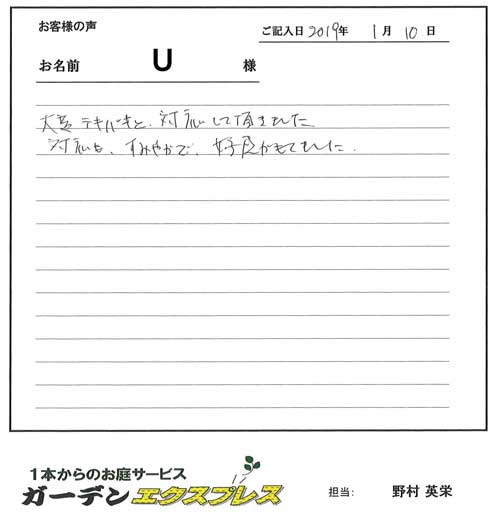 お客様の声
ご記入日 2019年 1月 10日
お名前 U 様
大変テキパキと、対応して頂きました
対応も、すみやかで、好感がもてました。
1本からのお庭サービス
ガーデンエクスプレス
担当: 野村 英栄